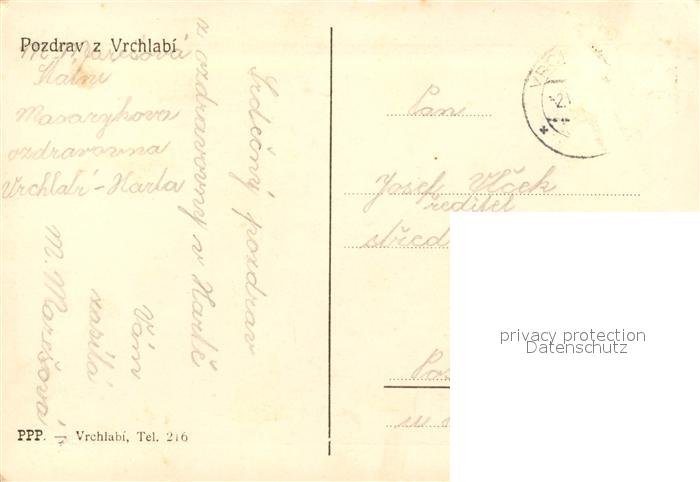 Pozdrav z Vrchlabí
M. Marešová
Státní
Masarykova
ozdravovna
Vrchlabí-Harta
Srdečný pozdrav
z ozdravovny v Hartě
Vám
zasílá
M. Marešová
PPP. Vrchlabí, Tel. 216
Pan
Josef Vlček
ředitel
střed
privacy protection
Datenschutz